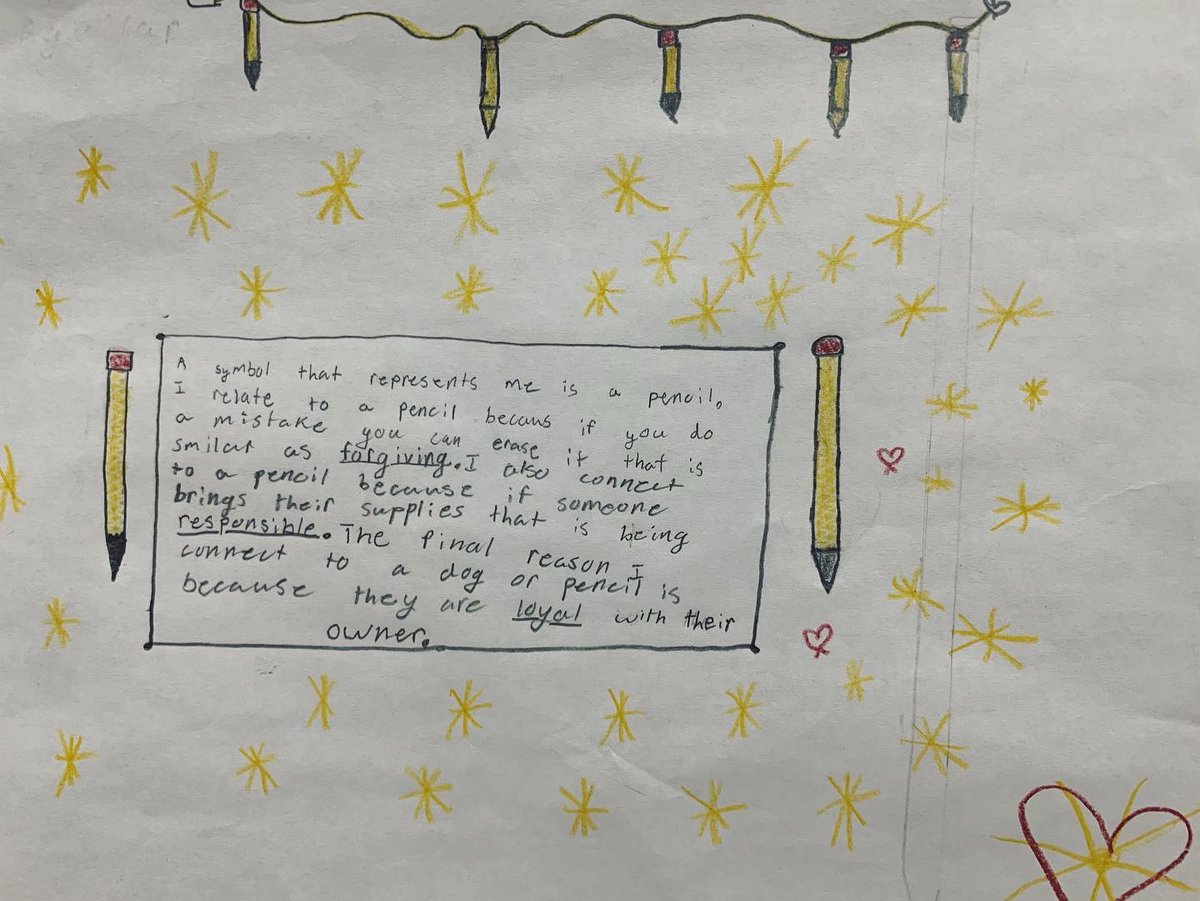 A symbol that represents me is a pencil.
I relate to a pencil becaus if you do
a mistake you can erase it that is
smilar as forgiving. I also connect
to a pencil because if someone
brings their supplies that is being
responsible. The final reason I
connect to a dog or pencil is
because they are loyal with their
owner.